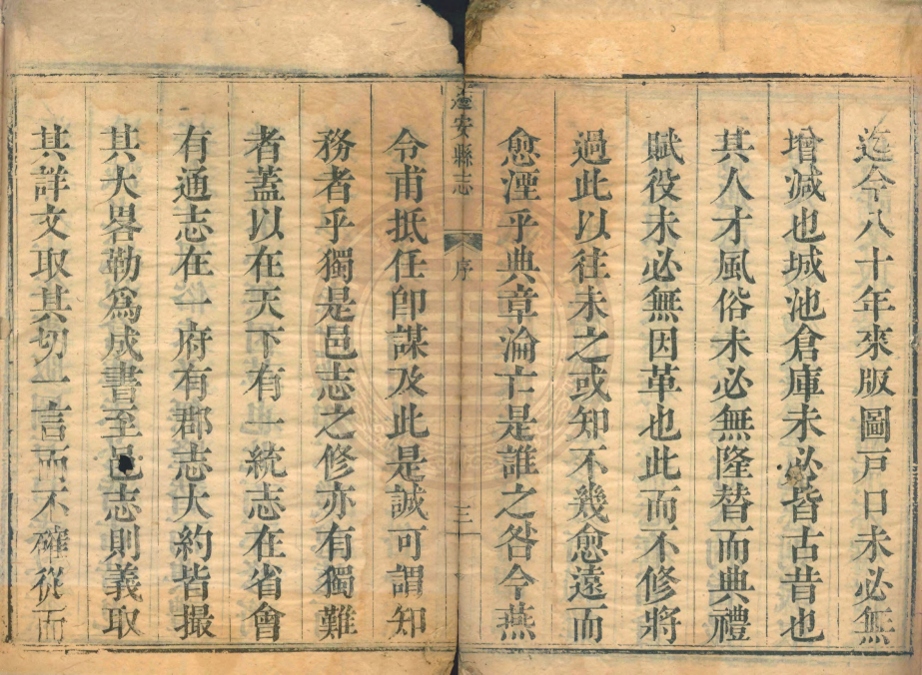 迄今八十年來版圖戸口未必無
增減也城池倉庫未必皆古昔也
其人才風俗未必無隆替而典禮
賦役未必無因革也此而不修將
過此以往未之或知不幾愈遠而
愈湮乎典章淪亡是誰之咎今燕
安縣志
序
三
令甫抵任卽謀及此是誠可謂知
務者乎獨是邑志之修亦有獨難
者蓋以在天下有一統志在省會
有通志在一府有郡志大約皆撮
其大畧勒爲成書至邑志則義取
其詳文取其切一言而不確從而